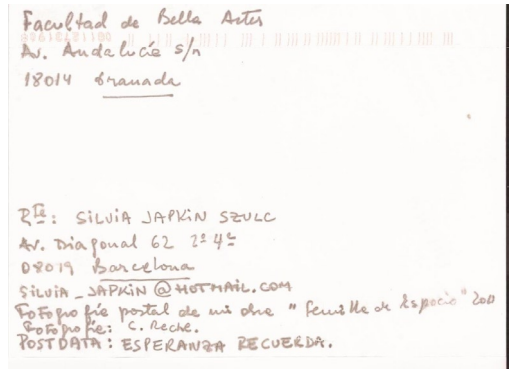 Facultad de Bella Artes
Av. Andalucía s/n
18014 Granada
Rte: SILVIA JAPKIN SZULC
Av. Diagonal 62 2º 4ª
08019 Barcelona
SILVIA_JAPKIN@HOTMAIL.COM
Fotografía postal de mi obra "Semilla de Espacio" 200
Fotografía: C. Reche.
POSTDATA: ESPERANZA RECUERDA.